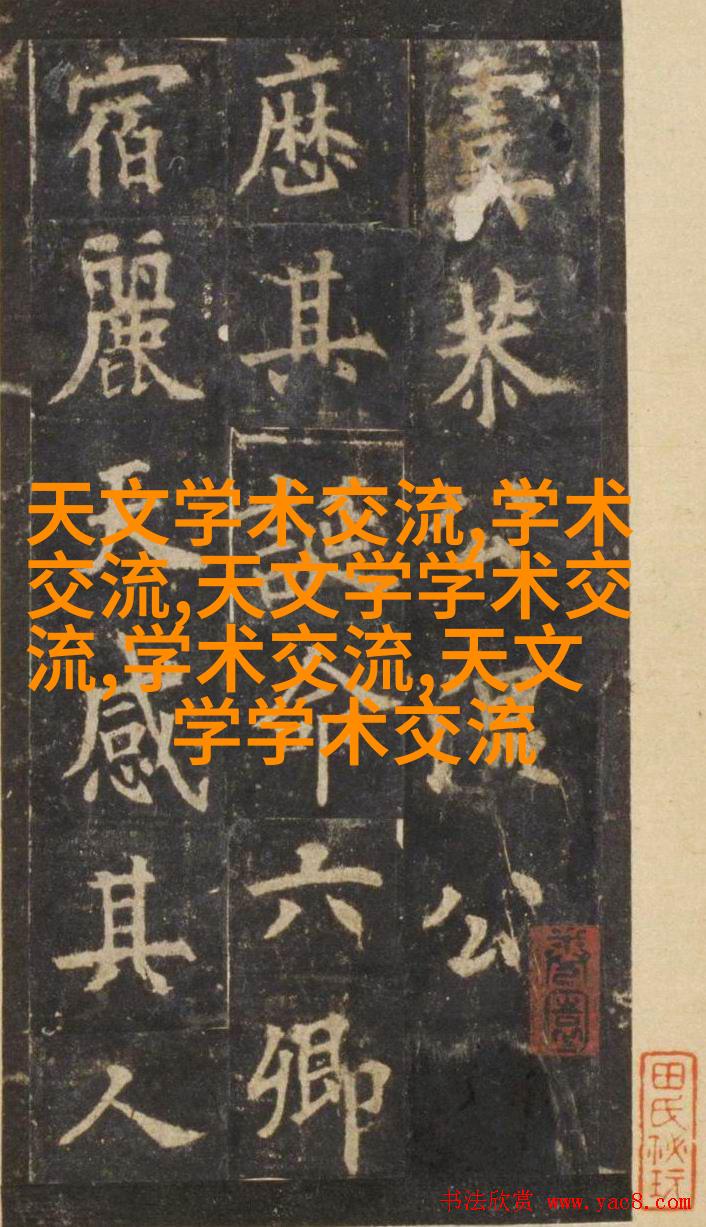 恭公
厯其命六卿
宿麗天感其人
天文学术交流,学术
交流,天文学学术交
流,学术交流,天文
学学术交流
田氏祕玩
书法欣赏 www.yac8.com